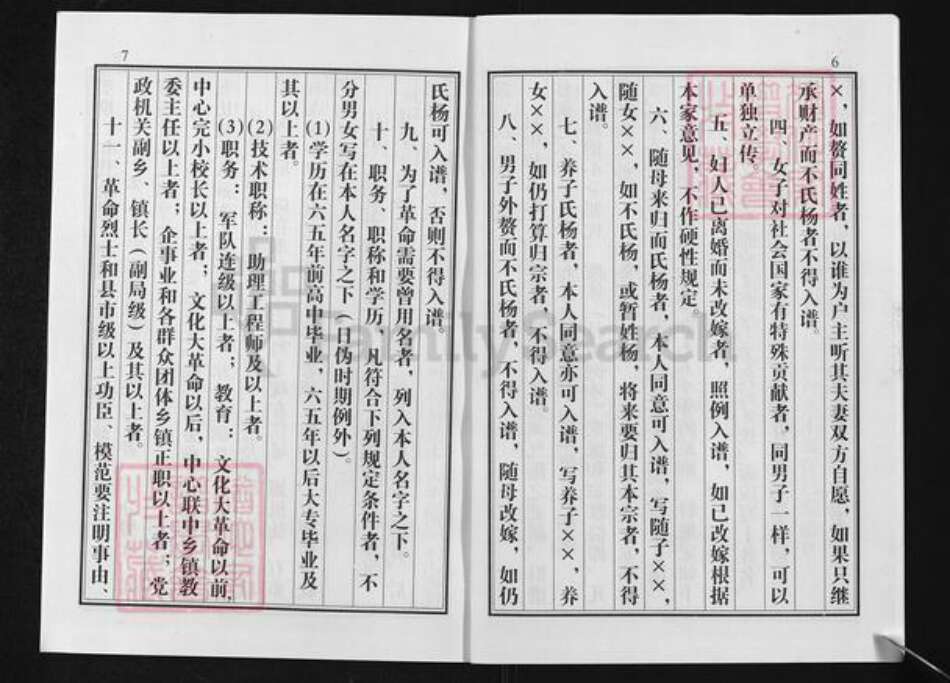 6
××，如赘同姓者，以谁为户主听其夫妻双方自愿，如果只继
承财产而不氏杨者不得入谱。
四、女子对社会国家有特殊贡献者，同男子一样，可以
单独立传
五、妇人已离婚而未改嫁者，照例入谱，如已改嫁根据
本家意见，不作硬性规定
六、随母来归而氏杨者，本人同意可入谱，写随子××，
随女××，如不氏杨，或暂姓杨，将来要归其本宗者，不得
入谱。
七、养子氏杨者，本人同意亦可入谱，写养子××，养
女××，如仍打算归宗者，不得入谱。
八、男子外赘而不氏杨者，不得入谱，随母改嫁，如仍
7
氏杨可入谱，否则不得入谱。
九、为了革命需要曾用名者，列入本人名字之下。
十、职务、职称和学历，凡符合下列规定条件者，不
分男女写在本人名字之下（日伪时期例外）。
(1)学历在六五年前高中毕业，六五年以后大专毕业及
其以上者。
(2)技术职称：助理工程师及以上者。
(3)职务：军队连级以上者；教育：文化大革命以前，
中心完小校长以上者；文化大革命以后，中心联中乡镇教
委主任以上者；企事业和各群众团体乡镇正职以上者；党
政机关副乡、镇长（副局级）及其以上者。
十一、革命烈士和县市级以上功臣、模范要注明事由、
FamilySearch